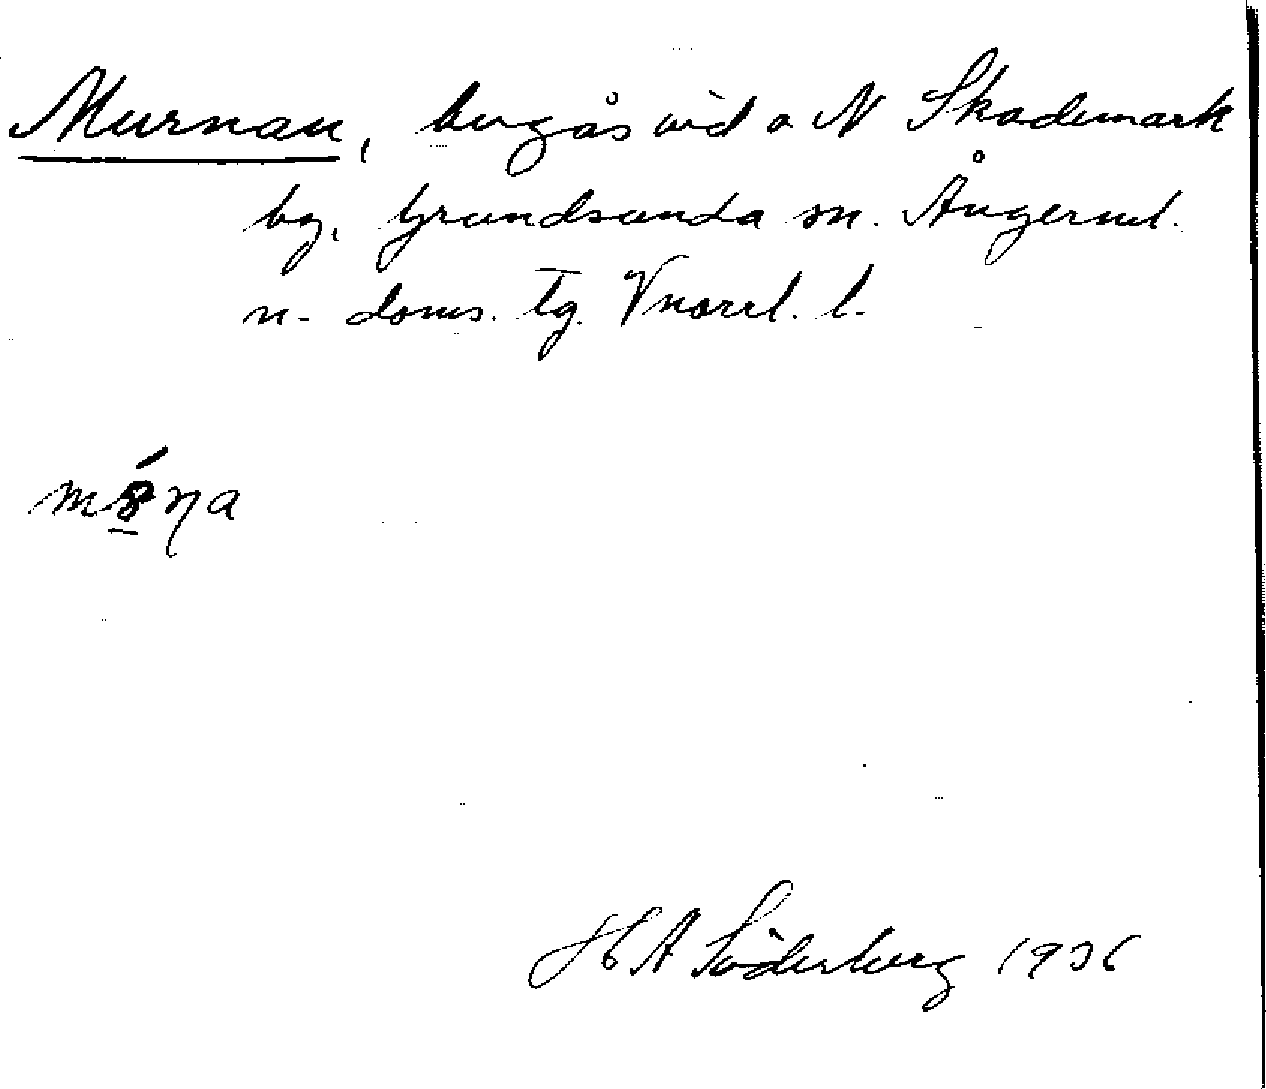 Murnan, bergås vid o N Skademark
by, Grundsunda sn. Ångerml.
n. doms. tg. Vnorrl. l.
H A Söderberg 1936